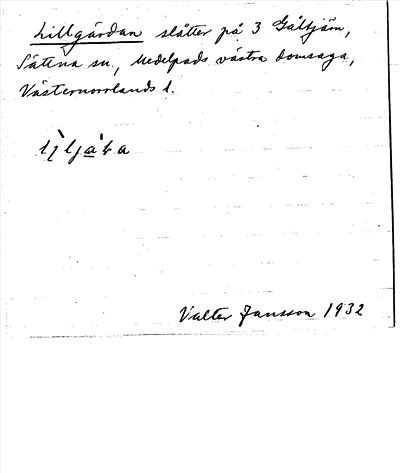 Lillgärdan slåtter på 3 Gåltjärn,
Sättna sn., Medelpads västra domsaga,
Västernorrlands l.
Valter Jansson 1932